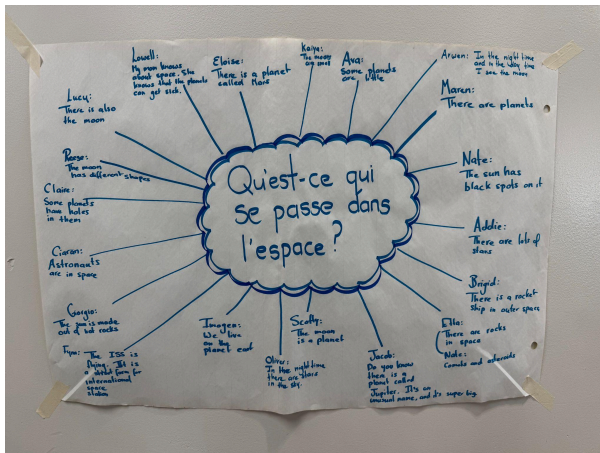 Qu'est-ce qui
se passe dans
l'espace?
Lowell:
My mom knows
about space. She
knows that the planets
can get sick.
Eloise:
There is a planet
called Mars
Kaiya:
The moon
Ava:
Some planets
are little
Arwen: In the night time
and in the day time
I see the moon
Maren:
There are planets
Nate:
The sun has
black spots on it
Addie:
There are lots of
stars
Brigid:
There is a rocket
ship in outer space
Ella:
There are rocks
in space
Nate:
Comets and asteroids
Jacob:
Do you know
there is a
planet called
Jupiter. It's an
unusual name, and it's super big.
Scotty:
The moon
is a planet
Oliver:
In the night time
there are stars
in the sky.
Imogen:
We live
on the
planet eart
The ISS is
flying. It is
a short form for
international
space
station
Giorgio:
The sun is made
out of hot rocks
Ciaran:
Astronauts
are in space
Claire:
Some planets
have holes
in them
Reese:
The moon
has different shapes
Lucy:
There is also
the moon